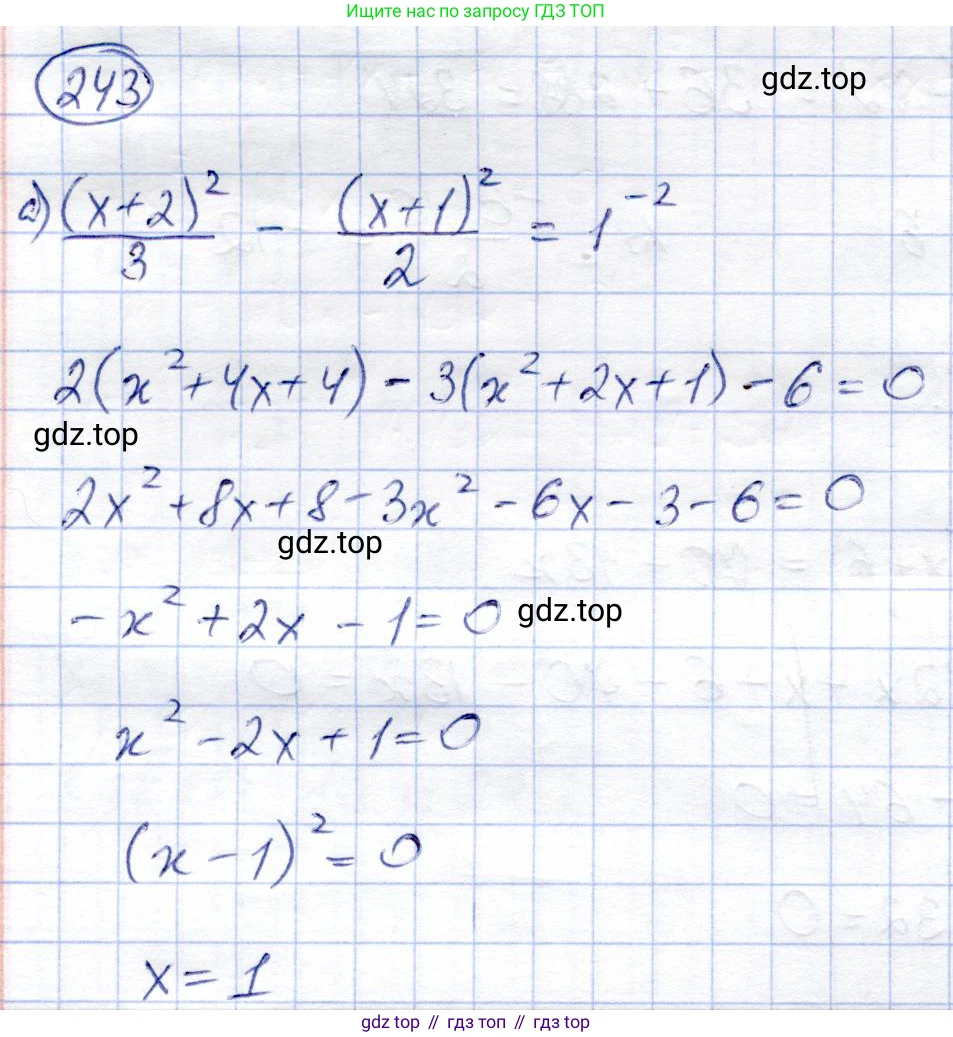 Ищите нас по запросу ГДЗ ТОП
243
gdz.top
а) (x+2)²/3 - (x+1)²/2 = 1⁻²
2(x²+4x+4) - 3(x²+2x+1) - 6 = 0
gdz.top
2x²+8x+8-3x²-6x-3-6=0
gdz.top
-x²+2x-1=0
gdz.top
x²-2x+1=0
(x-1)²=0
x=1
gdz top // гдз топ // гдз top